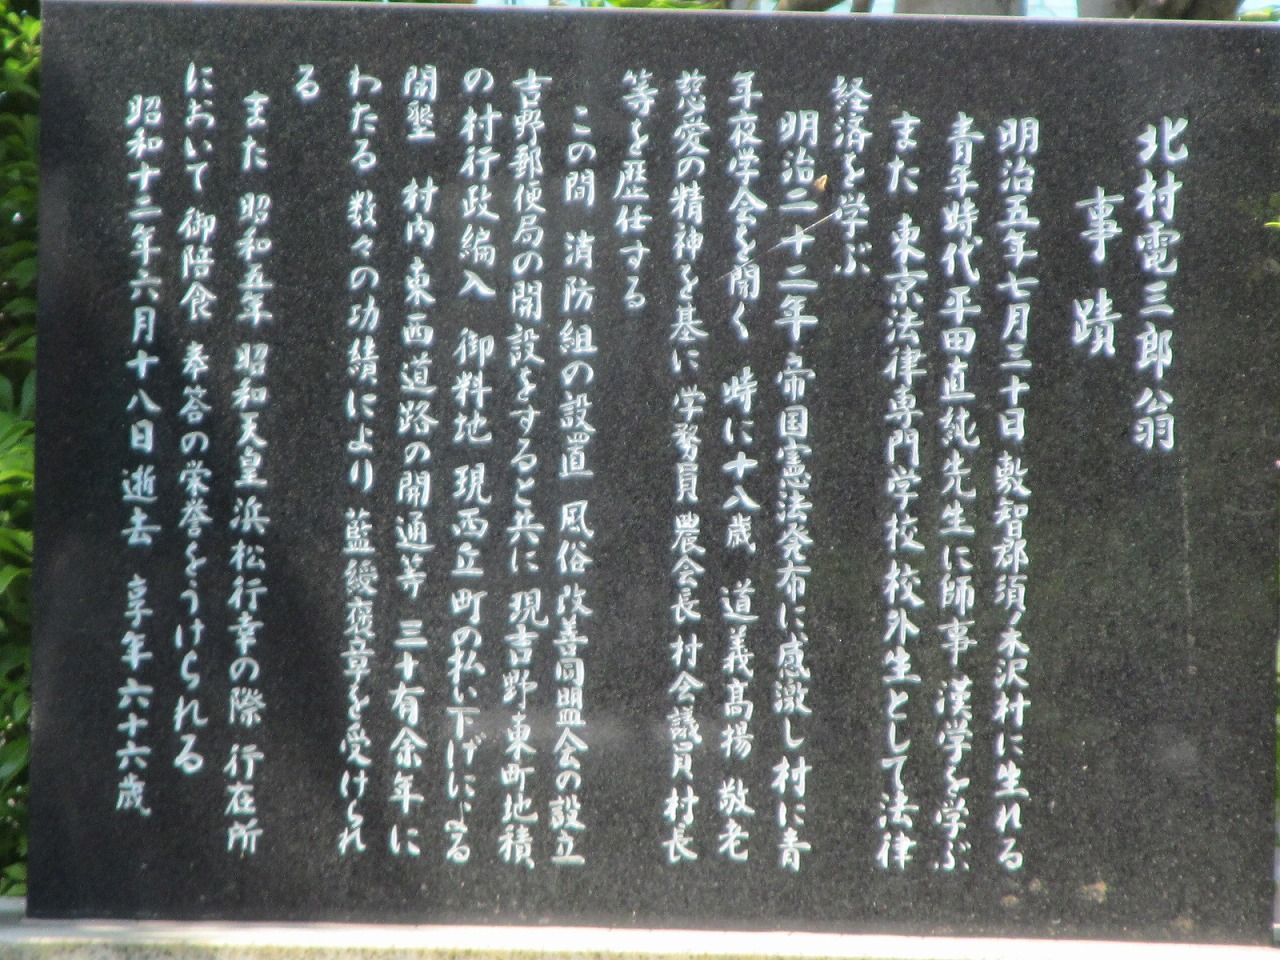 北村電三郎翁
事蹟
明治五年七月三十日 敷智郡須ノ木沢村に生れる
青年時代 平田直純先生に師事 漢学を学ぶ
また 東京法律専門学校校外生として法律
経済を学ぶ
明治二十二年 帝国憲法発布に感激し村に青
年夜学会を開く 時に十八歳 道義高揚 敬老
慈愛の精神を基に 学務員 農会長 村会議員 村長
等を歴任する
この間 消防組の設置 風俗改善同盟会の設立
吉野郵便局の開設をすると共に 現吉野東町地積
の村行政編入 御料地 現西丘町の払い下げによる
開墾 村内東西道路の開通等 三十有余年に
わたる 数々の功績により 藍綬褒章を受けられ
る
また 昭和五年 昭和天皇浜松行幸の際 行在所
において 御陪食 奉答の栄誉をうけられる
昭和十二年六月十八日 逝去 享年六十六歳